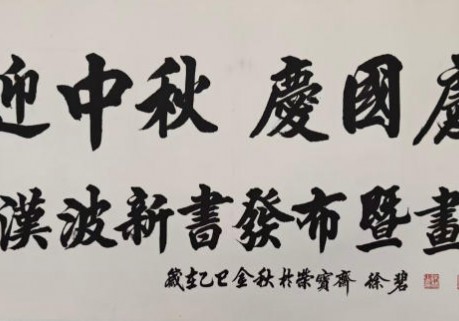 迎中秋 慶國
漢波新書發布暨畫
歲在乙巳金秋於榮寶齋 徐碧